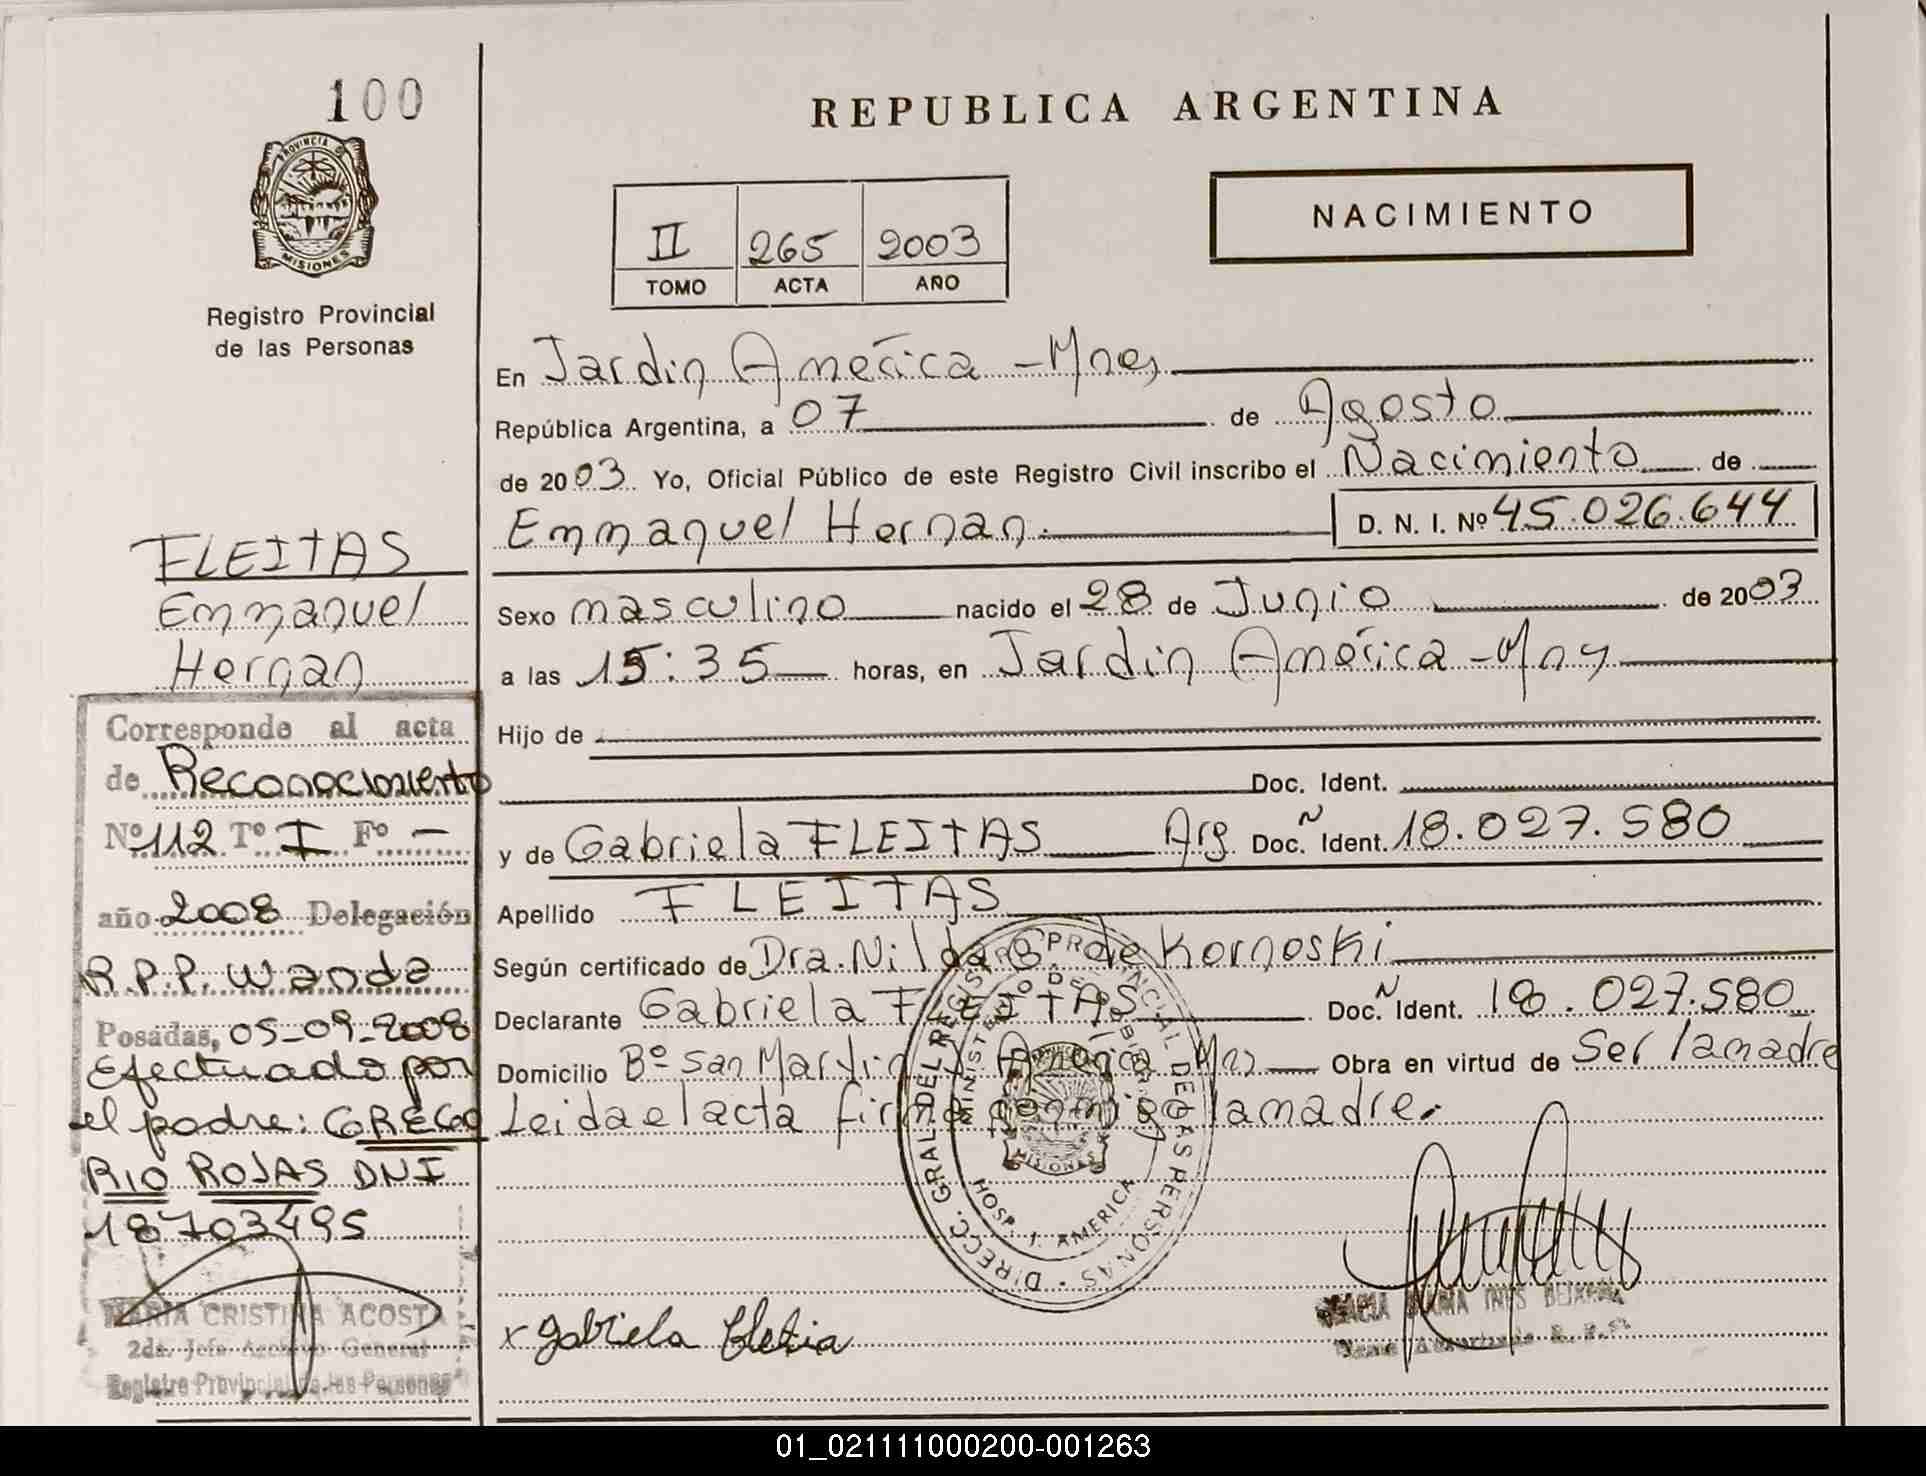 100
PROVINCIA DE
MISIONES
Registro Provincial
de las Personas
REPUBLICA ARGENTINA
NACIMIENTO
II 265 2003
TOMO ACTA AÑO
En Jardin América - Mnes
República Argentina, a 07 de Agosto
de 2003 Yo, Oficial Público de este Registro Civil inscribo el Nacimiento de
Emmanuel Hernan. D. N. I. Nº 45.026.644
Sexo masculino nacido el 28 de Junio de 2003
a las 15:35 horas, en Jardin América - Mns
Hijo de
Doc. Ident.
y de Gabriela FLEITAS Arg Doc. N Ident. 18.027.580
Apellido FLEITAS
Según certificado de Dra. Nilda B. de Kornoski
Declarante Gabriela FLEITAS Doc. N Ident. 18.027.580
Domicilio Bº San Martin J. America Mns Obra en virtud de Ser la madre
Leida el acta firma conmigo la madre.
x Gabriela
FLEITAS
Emmanuel
Hernan
Corresponde al acta
de Reconocimiento
Nº 112 Tº I Fº -
año 2008 Delegación
R.P.P. Wanda
Posadas, 05-09-2008
Efectuado por
el padre: GREGO
RIO ROJAS DNI
18703495
MARIA CRISTINA ACOSTA
2da. Jefe Archivo General
Registro Provincial de las Personas
DIRECC. GRAL. DEL REGISTRO PROVINCIAL DE LAS PERSONAS
MINISTERIO DE GOBIERNO
HOSP. J. AMERICA
MISIONES
01_021111000200-001263